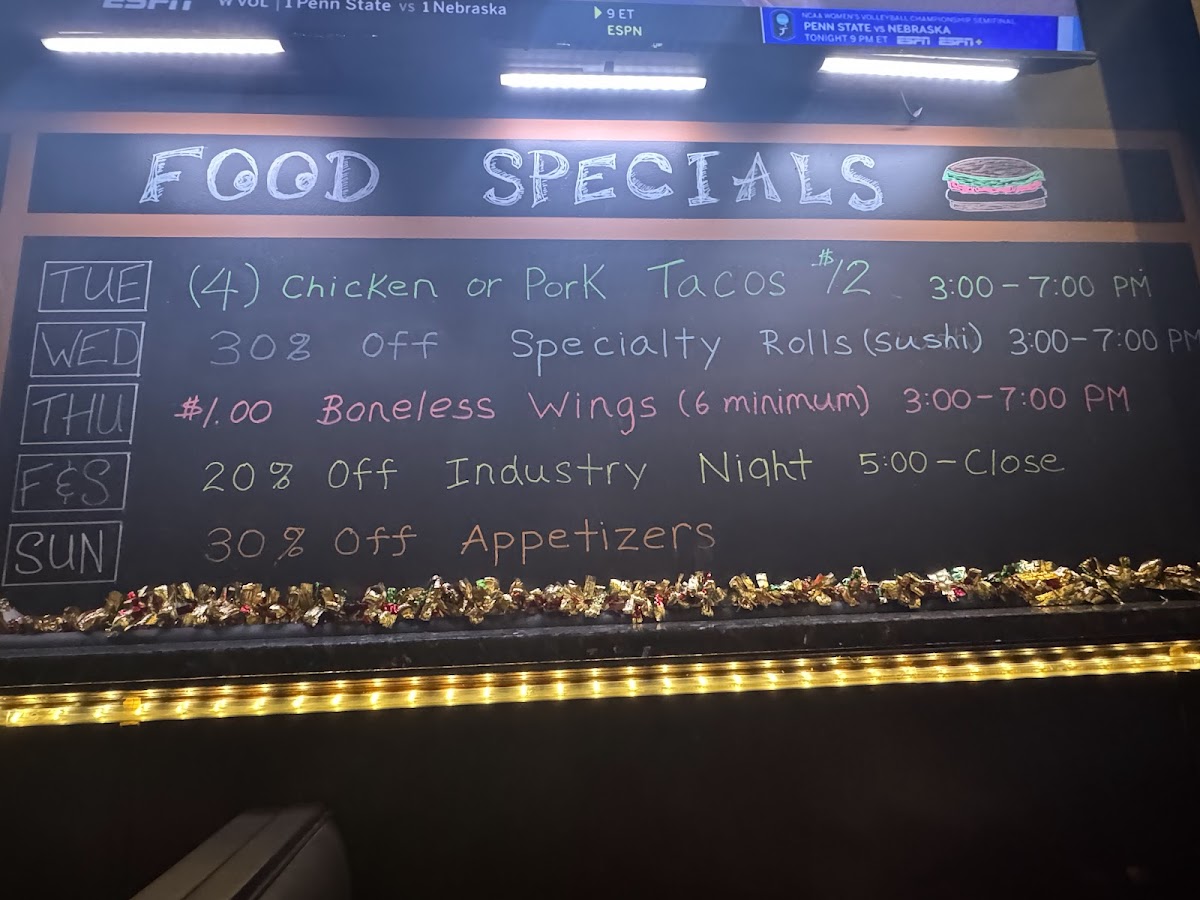 ESPN W VOL | 1 Penn State vs 1 Nebraska
9 ET
ESPN
NCAA WOMEN'S VOLLEYBALL CHAMPIONSHIP SEMIFINAL
PENN STATE vs NEBRASKA
TONIGHT 9 PM ET ESPN ESPN+
FOOD SPECIALS
TUE (4) Chicken or Pork Tacos $12 3:00-7:00 PM
WED 30% Off Specialty Rolls (sushi) 3:00-7:00 PM
THU $1.00 Boneless Wings (6 minimum) 3:00-7:00 PM
F&S 20% Off Industry Night 5:00-Close
SUN 30% Off Appetizers